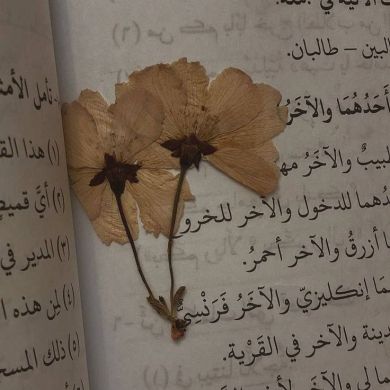 البين – طالبان.
أَحَدُهُمَا وَالآخَرُ
طبيبٌ والآخَرُ مه
دهما للدخول والآخر للخرو
ا أزرقُ والآخر أحمرُ.
مَا إنكليزيّ والآخَرُ فَرَنْسِيٌّ
دينة والآخر في القَرْية.
تأمل الأمث
(١) هذا الق
(٢) أيَّ قميص
(٣) المدير في
(٤) لِمَن هذه ا
(٥) ذلك المسج